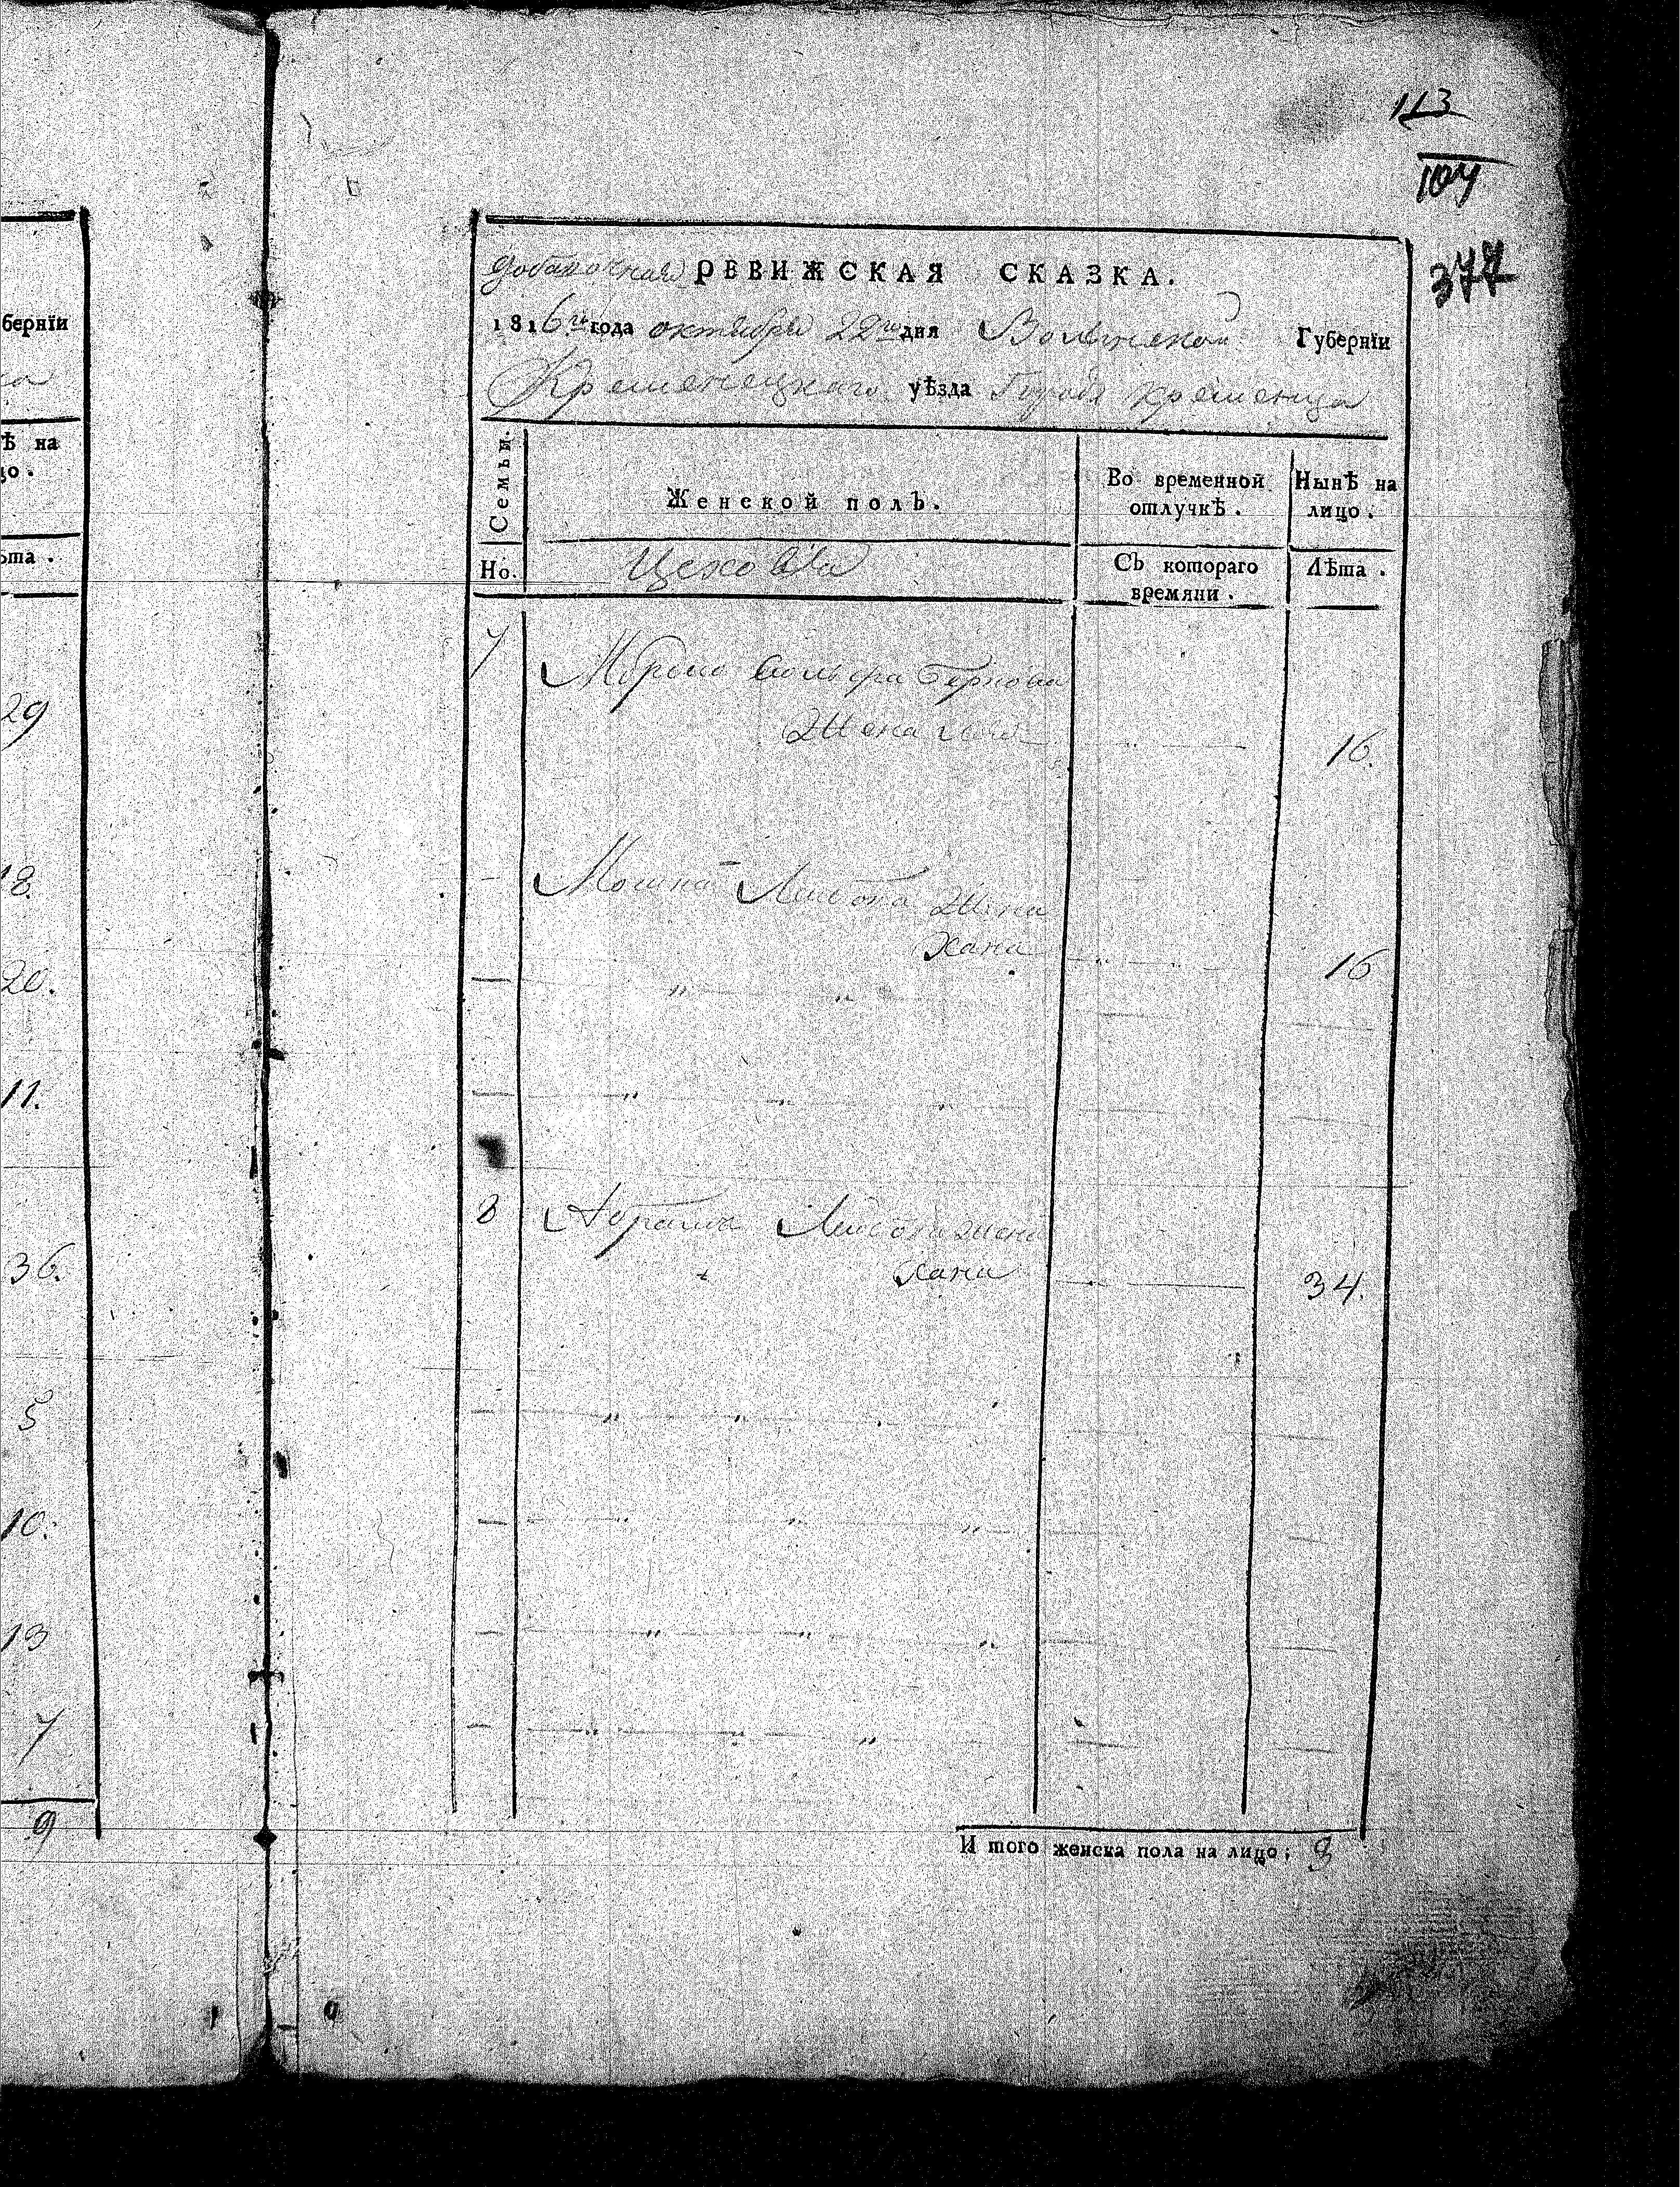 113
104
377
добавочная РЕВИЖСКАЯ СКАЗКА.
1816го года октября 22го дня Волынской Губернїи
Кременецкаго уѣзда Города Кременца
Семьи.
Женской полъ.
Во временной отлучкѣ.
Нынѣ на лицо.
Но.
Съ котораго времяни.
Лѣта.
7
Жена
16.
Мошка Лейбова жена
Хана
16
8 Абрамка Лейбова жена
Хана
34.
И того женска пола на лицо; 3
бернїи
ѣ на
цо.
ѣта.
29
18
20.
11.
36.
5
10.
13
7
9